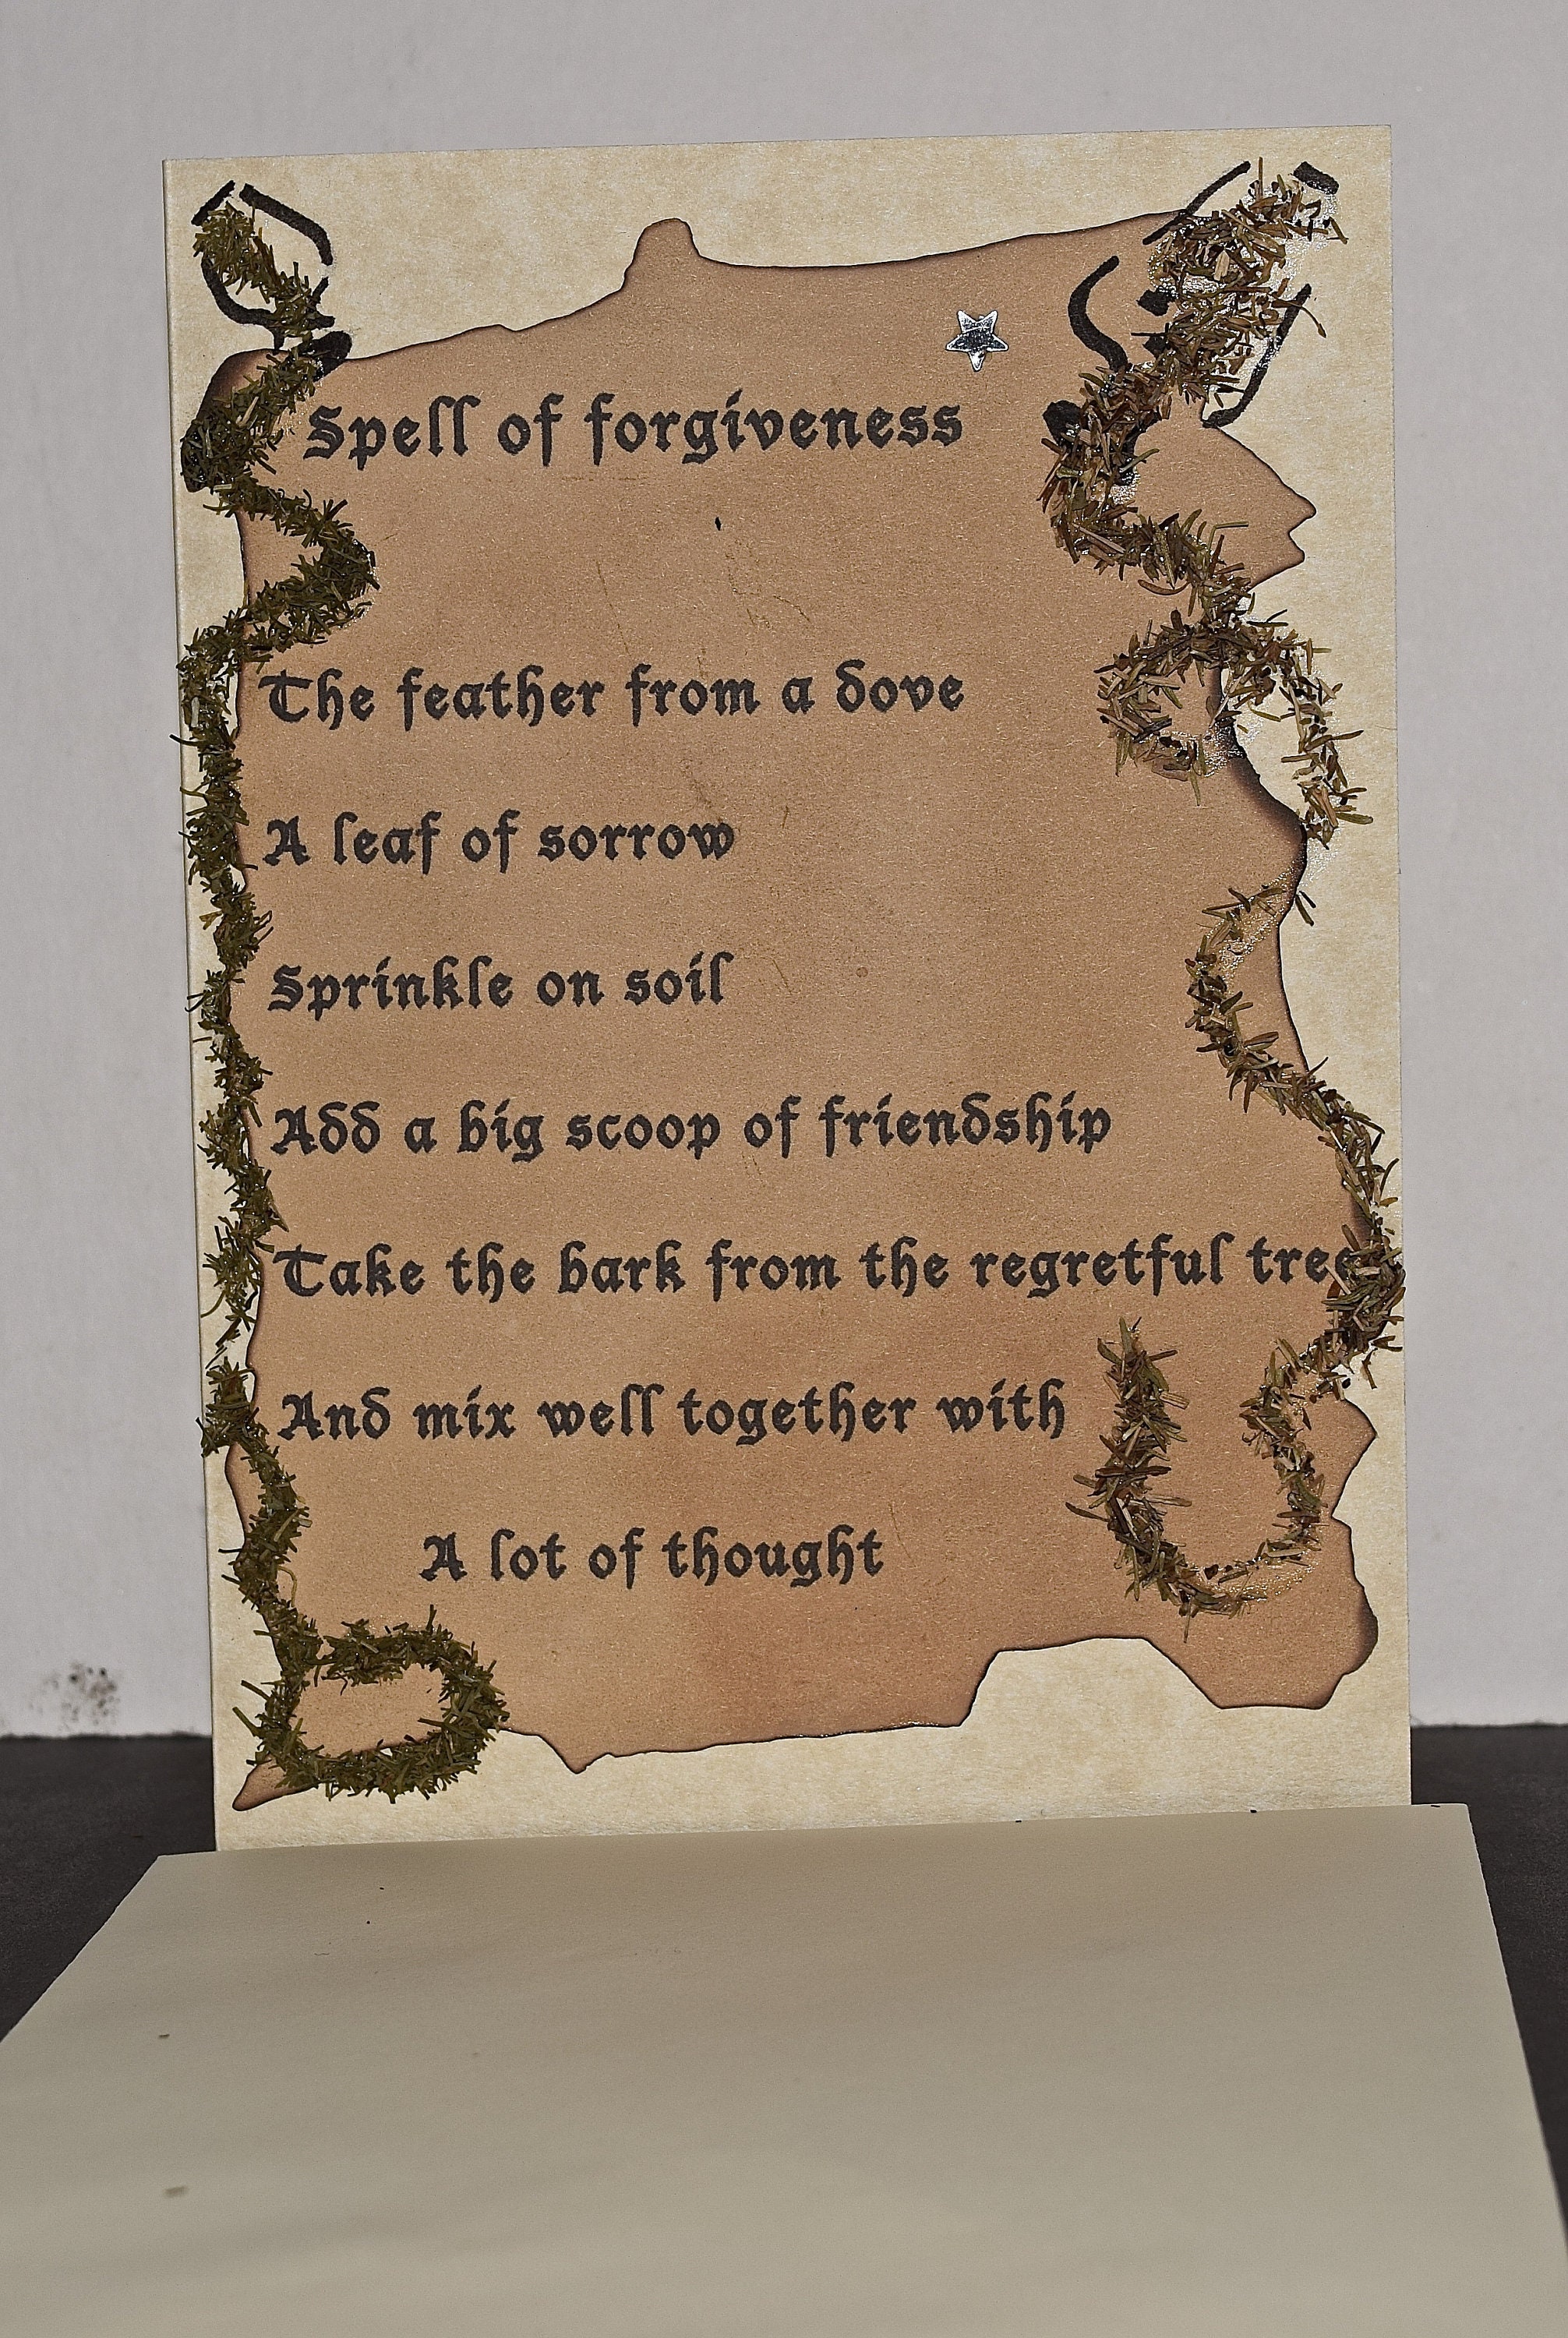 Spell of forgiveness
The feather from a dove
A leaf of sorrow
Sprinkle on soil
Add a big scoop of friendship
Take the bark from the regretful tree
And mix well together with
A lot of thought